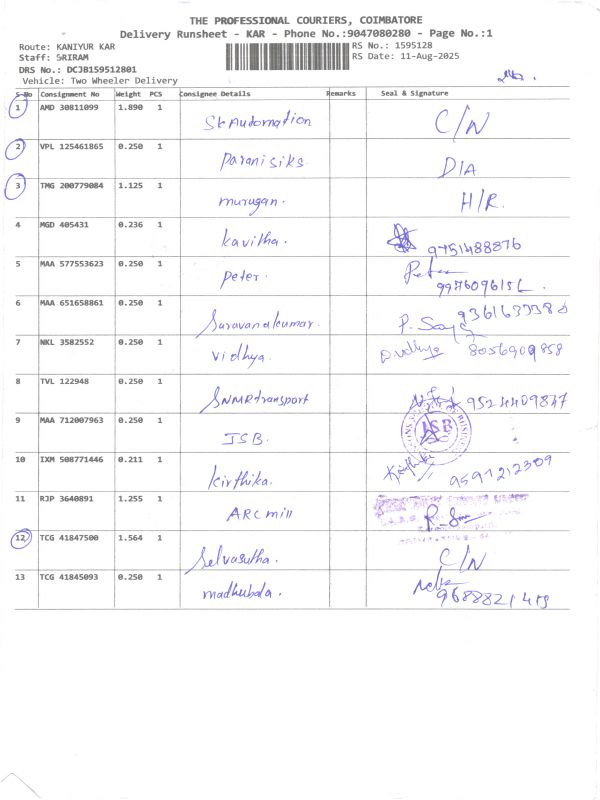 THE PROFESSIONAL COURIERS, COIMBATORE
Delivery Runsheet - KAR - Phone No.:9047080280 - Page No.:1
Route: KANIYUR KAR
RS No.: 1595128
Staff: SRIRAM
RS Date: 11-Aug-2025
DRS No.: DCJB159512801
Vehicle: Two Wheeler Delivery
S-No Consignment No Weight PCS Consignee Details Remarks Seal & Signature
1 AMD 30811099 1.890 1 Sk Automation C/N
2 VPL 125461865 0.250 1 Paranisiks D/A
3 TMG 200779084 1.125 1 murugan. H/R.
4 MGD 405431 0.236 1 Kavitha. 9751488876
5 MAA 577553623 0.250 1 Peter. Peter
6 MAA 651658861 0.250 1 Saravanakumar.
7 NKL 3582552 0.250 1 Vidhya. 8056909858
8 TVL 122948 0.250 1 SNMR transport 9524409847
9 MAA 712007963 0.250 1 JSB.
10 IXM 508771446 0.211 1 Kirthika. 9591212309
11 RJP 3640891 1.255 1 ARC mill
12 TCG 41847500 1.564 1 Selvasutha. C/N
13 TCG 41845093 0.250 1 madhubala.